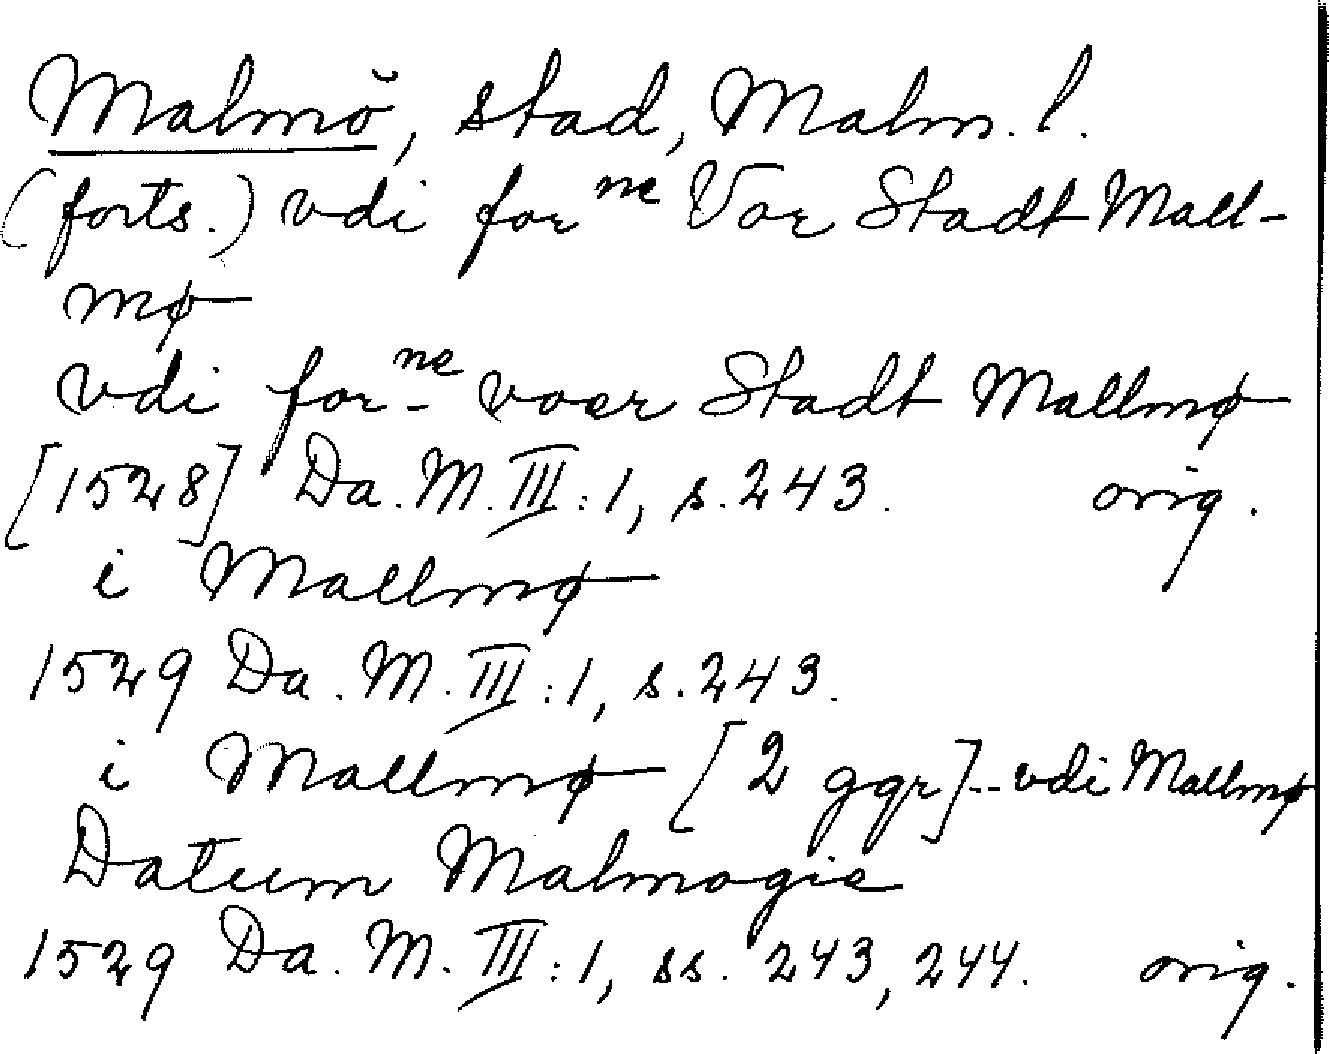 Malmö, stad, Malm. l.
(forts.) vdi for ne Vor Stadt Mall-
mø
vdi for ne voer Stadt Mallmø
[1528] Da. M. III:1, s. 243. orig.
i Mallmø
1529 Da. M. III:1, s. 243.
i Mallmø [2 ggr] -- vdi Mallmø
Datum Malmogie
1529 Da. M. III:1, ss. 243, 244. orig.